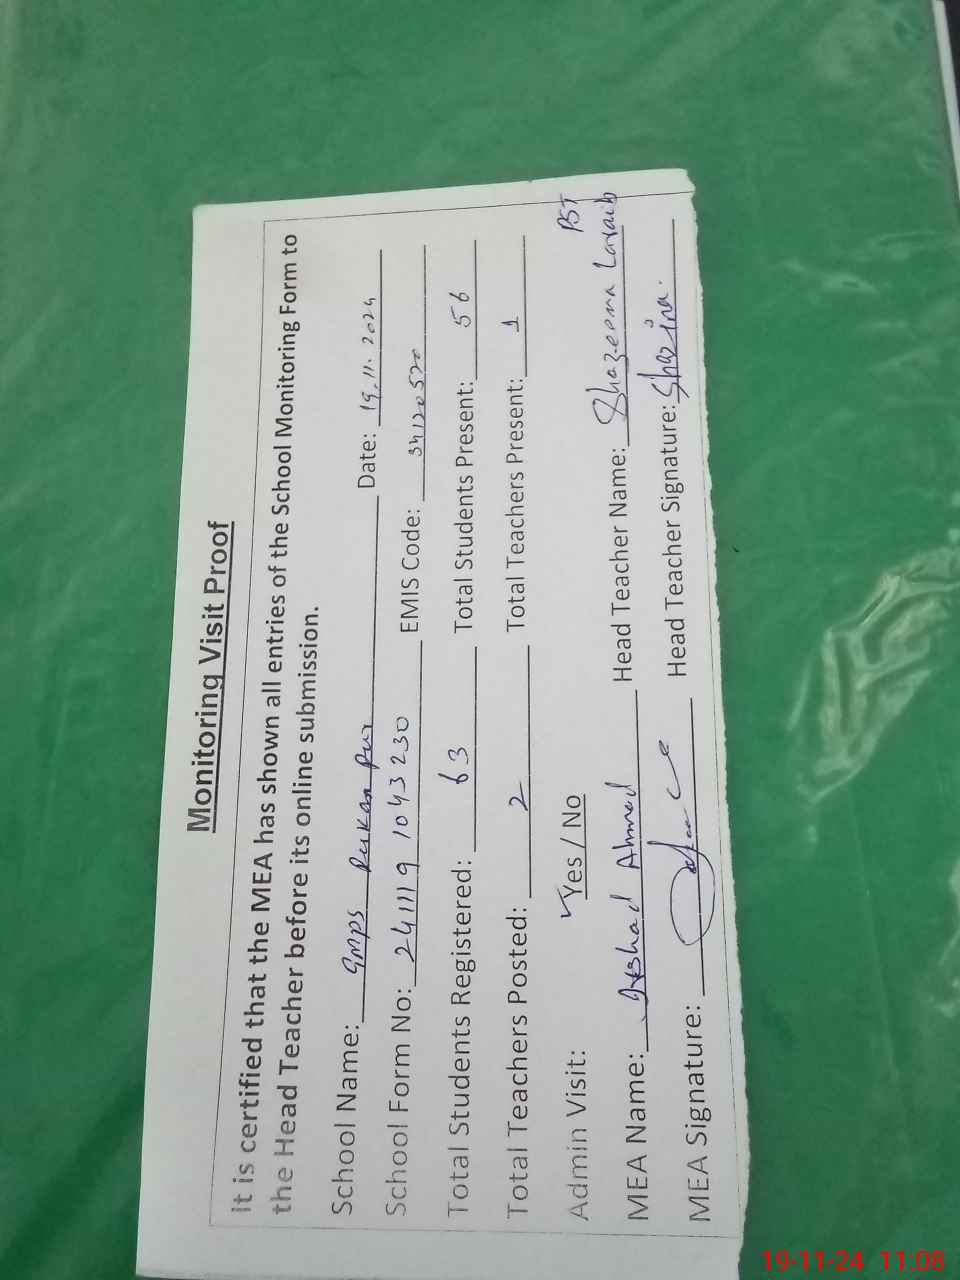 Monitoring Visit Proof
It is certified that the MEA has shown all entries of the School Monitoring Form to
the Head Teacher before its online submission.
School Name: GMPS Rukan Pur Date: 19.11.2024
School Form No: 241119 1043230 EMIS Code: 34120520
Total Students Registered: 63 Total Students Present: 56
Total Teachers Posted: 2 Total Teachers Present: 1
Admin Visit: Yes / No PST
MEA Name: Arshad Ahmad Head Teacher Name: Shazeena Laraib
MEA Signature: Head Teacher Signature: Shazina.
19-11-24 11:08